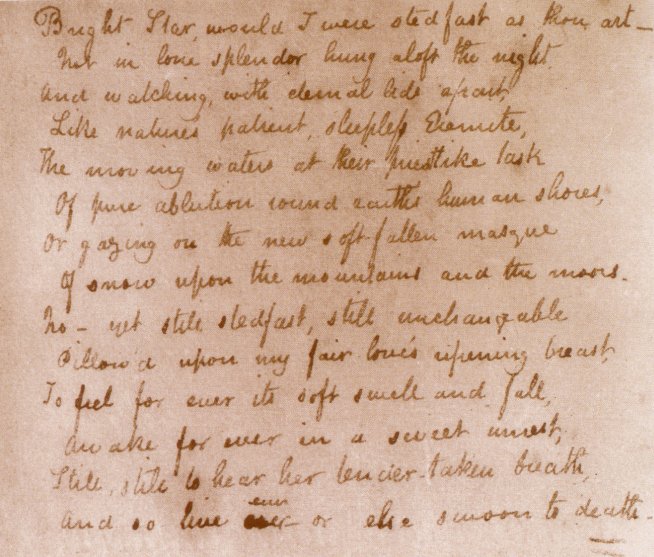 Bright Star, would I were stedfast as thou art—
Not in lone splendor hung aloft the night
And watching, with eternal lids apart,
Like natures patient, sleepless Eremite,
The moving waters at their priestlike task
Of pure ablution round earth's human shores,
Or gazing on the new soft-fallen masque
Of snow upon the mountains and the moors.
No— yet still stedfast, still unchangeable
Pillow'd upon my fair love's ripening breast,
To feel for ever its soft swell and fall,
Awake for ever in a sweet unrest,
Still, still to hear her tender-taken breath,
And so live ever or else swoon to death—